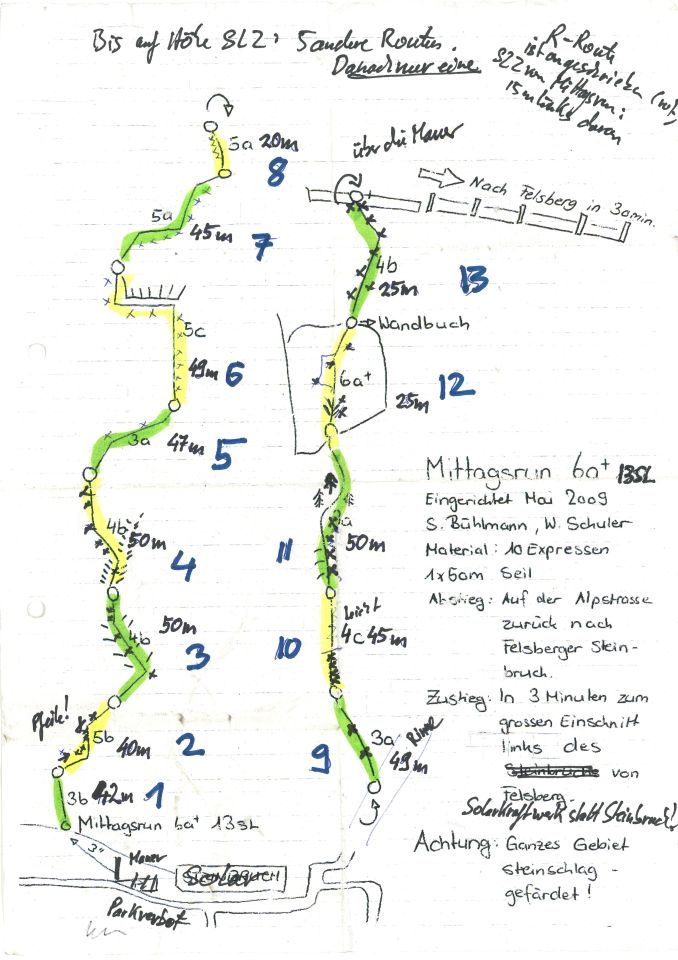 Bis auf Höhe SLZ: 5 andere Routen.
Danach nur eine
R-Route
ist angeschrieben (rot)
SLZ von Mittagsrun:
15m links davon
5a 20m
8
5a
45m
7
5c
49m 6
3a
47m
5
4b
50m
4
50m
4b
3
Pfeile!
5b
40m
2
3b 42m 1
Mittagsrun 6a+ 13SL
3"
Mauer
Solar
Parkverbot
über die Mauer
Nach Felsberg in 30min.
4b
25m
13
Wandbuch
6a+
25m
12
3a
50m
11
leicht
4c 45m
10
3a
49m
Rinne
9
Mittagsrun 6a+ 13SL
Eingerichtet Mai 2009
S. Bühlmann, W. Schuler
Material: 10 Expressen
1x50m Seil
Abstieg: Auf der Alpstrasse
zurück nach
Felsberger Stein-
bruch.
Zustieg: In 3 Minuten zum
grossen Einschnitt
links des
Steinbruchs von
Felsberg.
Solarkraftwerk statt Steinbruch!
Achtung: Ganzes Gebiet
steinschlag-
gefärdet!